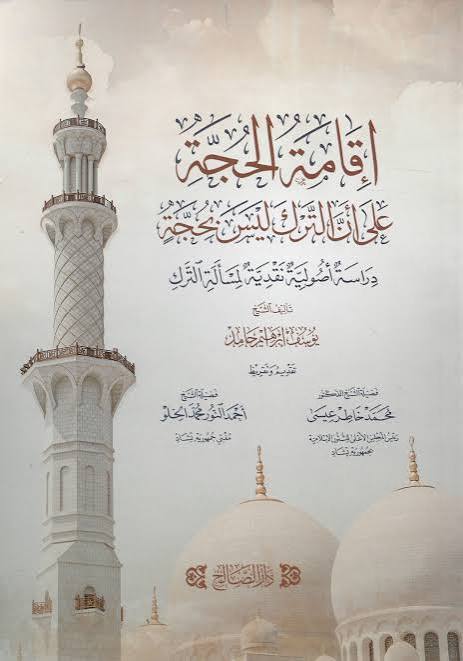 إقامة الحُجَّة
على أنَّ التَّرك ليسَ بحُجَّةٍ
دِرَاسَةٌ أُصُولِيَّةٌ نَقْدِيَّةٌ لِمَسْأَلَةِ التَّرْكِ
تأليف الشيخ
يوسف إبراهيم حامد
تقديم وتقريظ
فضيلة الشيخ الدكتور
محمد خاطر عيسى
رئيس المجلس الأعلى للشئون الإسلامية
بجمهورية تشاد
فضيلة الشيخ
أحمد النور محمد الحلو
مفتي جمهورية تشاد
دار الصالح